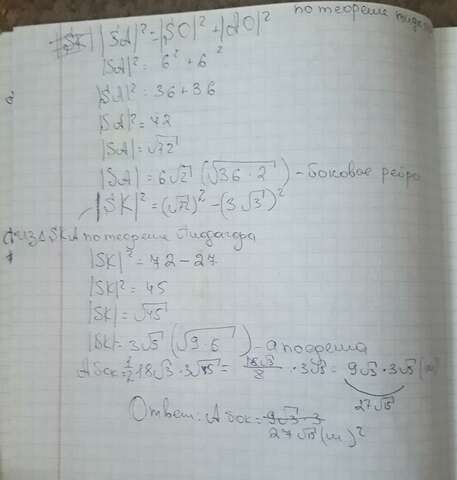 по теореме
|SA|² = |SO|² + |AO|²
|SA|² = 6² + 6²
|SA|² = 36 + 36
|SA|² = 72
|SA| = √72
|SA| = 6√2 (√36 · 2) - боковое ребро
|SK|² = (√72)² - (3√3)²
из ΔSKA по теореме Пифагора
|SK|² = 72 - 27
|SK|² = 45
|SK| = √45
|SK| = 3√5 (√9 · 5) - апофема
Aбок = 1/2 18√3 · 3√5 = 18√3/2 · 3√5 = 9√3 · 3√5 (м)
27√15
Ответ: Aбок = 9√3 · 3
27√15 (м)²